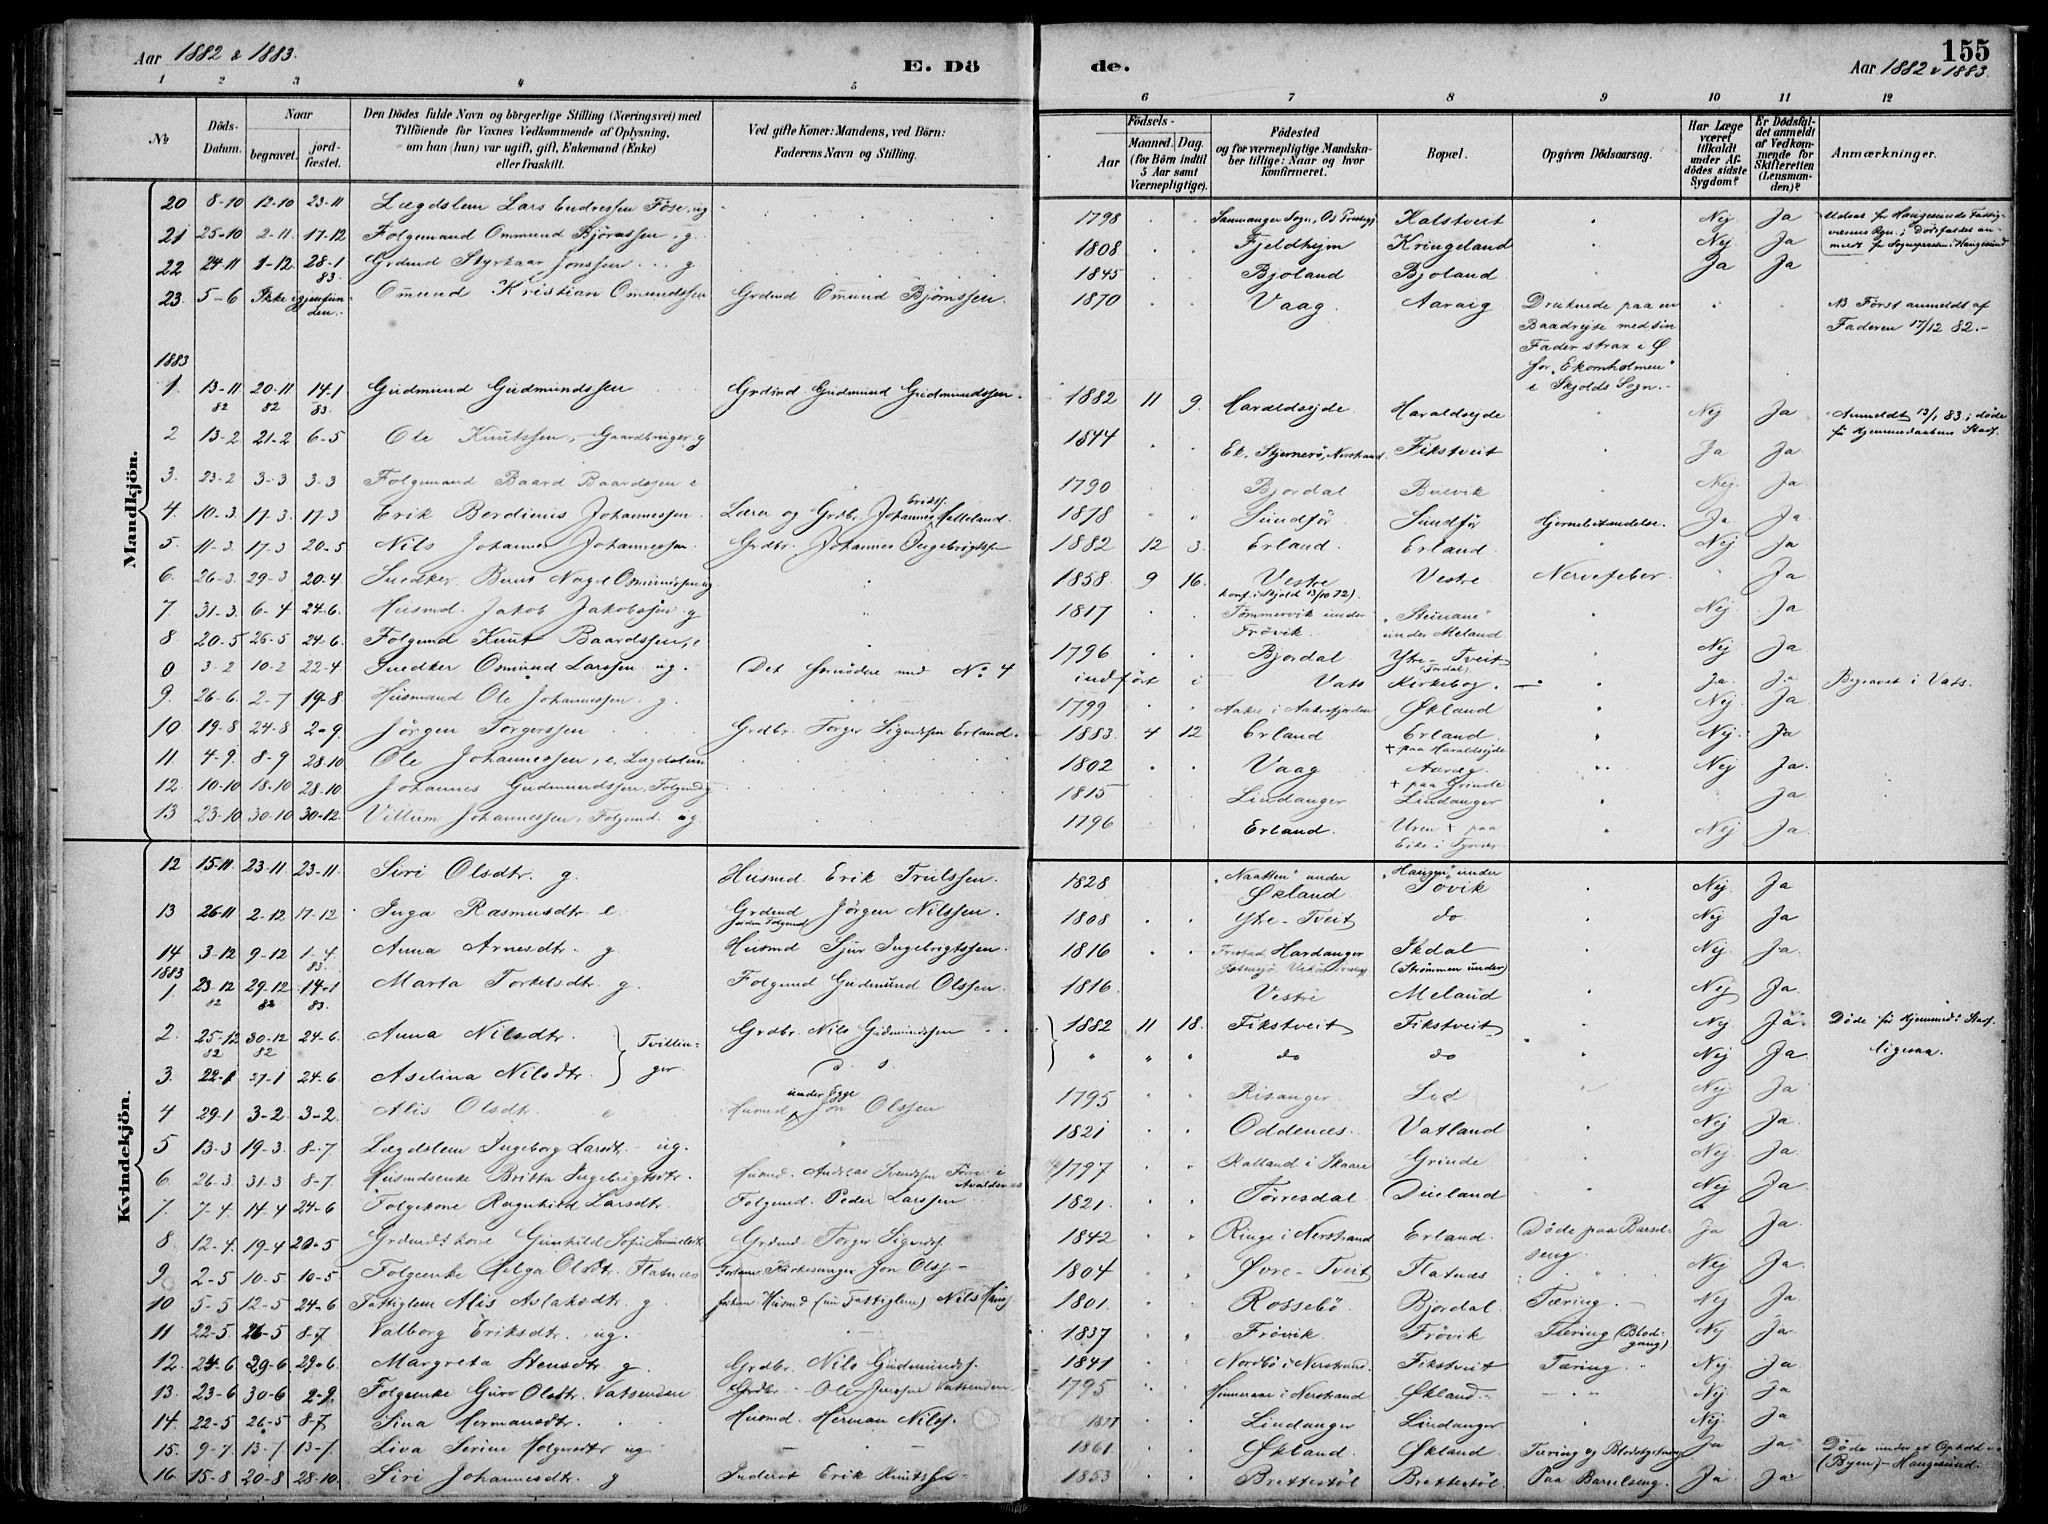 Aar 1882 & 1883.
E. Dö
de.
155
Aar 1882 & 1883.
1 2 3 4 5 6 7 8 9 10 11 12
No
Döds-Datum.
Naar
begravet.
jordfæstet.
Den Dödes fulde Navn og börgerlige Stilling (Næringsvei) med
Tilföiende for Voxnes Vedkommende af Oplysning,
om han (hun) var ugift, gift, Enkemand (Enke)
eller fraskilt.
Ved gifte Koner: Mandens, ved Börn:
Faderens Navn og Stilling.
Födsels-
Aar
Maaned. Dag.
(for Börn indtil
5 Aar samt
Værnepligtige).
Födested
og for værnepligtige Mandskaber
tillige: Naar og hvor
konfirmeret.
Bopæl.
Opgiven Dödsaarsag.
Har Læge
været
tilkaldt
under Afdödes
sidste
Sygdom?
Er Dödsfaldet
anmeldt
af Vedkommende
for
Skifteretten
(Lensmanden)?
Anmærkninger.
Mandkjön.
20 8-10 12-10 23-11 Lægdslem Lars Endressen Föse, ug 1798 Kalstveit Nej Ja
21 25-10 2-11 17-12 Folgemand Ommund Björnssen, g 1808 Fjeldhejm Kringeland Nej Ja
22 24-11 1-12 28-1 83. Grdmd Styrkaar Jonssen g 1845 Bjoland Bjoland Ja Ja
23. 5-6 Ikke igjenfunden. Omund Kristian Omundssen Grdmd Omund Björnssen. 1870 Vaag Aarvig Druknede paa en Baadrejse med sin Fader strax i Ø. for "Ekornholmen" i Skjolds Sogn. NB Först anmeldt af Faderen 17/12 82.
1883
1. 13-11 82 20-11 82 14-1 83. Gudmund Gudmundssen Grdmd Gudmund Gudmundssen. 1882 11 9. Haraldsejde Haraldsejde Nej Ja Anmeldt 13/1 83; döde
2 13-2 21-2 6-5 Ole Knutssen, Gaardbruger, g 1844 Stjernerö, Nerstrand. Fikstveit Ja Ja
3. 23-2 3-3 3-3 Folgemand Baard Baardssen e 1790 Bjordal Nej Ja
4. 10-3 17-3 17-3 Erik Berdinus Johannessen Lærer og Grdbr. Johannes Erikss. 1878 Sundför Sundför Hjernebetændelse. Ja Ja
5. 11-3 17-3 20-5 Nils Johannes Johannessen Grdbr. Johannes Ingebrigtssen 1882 12 3. Erland Erland Nej Ja
6. 26-3 29-3 20-4 Snedker 1858 9 16. Vestre konf. i Skjold 13/10 72). Vestre Nervefeber Ja
7 31-3 6-4 24-6. Husmd. Jakob Jakobssen g 1817 Tömmervik under Frövik. under Meland Nej Ja
8 20-5 26-5 24-6. Folgmd Knut Baardssen, e 1796 Bjordal Ytre-Tveit Nej Ja
0 3-2 10-2 22-4 Snedker Osmund Larssen ug. Det fornödne med No 4 indfört i Vats Kirkebog. Ja. Ja Begravet i Vats.
9. 26-6 2-7 19-8 Husmand Ole Johannessen g. 1799 Aakre i Aakrefjorden Økland Nej Ja
10 19-8 24-8 2-9 Jörgen Torgerssen Grdbr. Torger Sigurdssen Erland. 1883 4 12 Erland Erland. + paa Haraldsejde Nej. Ja
11 4-9. 8-9 28-10 Ole Johannessen, e, Lægdslem 1802 Vaag + paa Grinde Nej Ja
12. 10-10 18-10 28-10 Johannes Gudmundssen, Folgmd g 1815 Lindanger Lindanger Ja
13 23-10 30-10 30-12. Villum Johannessen, Folgmd. 1796 Erland. Uren + paa Nej Ja
Kvindekjön.
12 15-11 23-11 23-11. Siri Olsdtr. g. Husmd. Erik Trulssen. 1828 "Naatten" under Økland "Haugen" under Tövik Nej Ja
13 26-11 2-12 17-12 Inga Rasmusdtr e. Grdmd Jörgen Nilssen. 1808 Ytre-Tveit do Nej Ja
14 3-12 9-12 1-4 83. Anna Arnesdtr. g. Husmd Sjur Ingebrigtssen. 1816 Hardanger Ikdal (Strömmen under) Nej. Ja
1883
1. 23-12 82 29-12 82 14-1 83. Marta Torkelsdtr. g. Folgmd Gudmund Olssen. 1816. Vestre Meland Nej Ja
2. 25-12 82 30-12 82 24-6. Anna Nilsdtr. Tvillinger Grdbr. Nils Gudmundssen 1882 11 18. Fikstveit Fikstveit Nej Ja
3. 22-1 27-1 24-6. Aselina Nilsdtr. " " " do do Nej Ja ligesaa.
4 29-1 3-2 3-2. Alis Olsdtr. e Husmd under Egge Jon Olssen 1795 Risanger Lid Nej Ja
5 13-3 19-3. 8-7. Lægdslem Ingeborg Larsdtr. ug. 1821 Oddenæs. Vatland Nej Ja
6. 26-3 31-3 8-7. Husmdsenke Britta Ingebrigtsdtr. Husmd. Andreas Svendssen Förre i Avaldsnæs 1797 Kalland i Skaare Grinde Nej. Ja
7. 7-4. 14-4 24-6 Folgekone Ragnhild Larsdtr. Folgmd. Peder Larssen 1821. Törresdal Dueland Nej Ja
8. 12-4. 19-4 20-5 Grdmdskone Gunhild Sofie Samuelsdtr Grdmd. Torger Sigurdss. 1842 Ringe i Nerstrand Erland. Döde paa Barselseng. Ja Ja
9 2-5 10-5. 10-5 Folgeenke Helga Olsdtr. Flatnæs Kirkesanger Jon Olss. 1804 Øvre-Tveit Flatnæs Nej Ja
10 5-5 12-5 24-6 Fattiglem Alis Aslaksdtr. g. Husmd (nu Fattiglem) Nils 1801. Rossebö Bjordal. Tæring. Nej Ja
11 22-5. 26-5 8-7. Valborg Eriksdtr. ug. 1837 Frövik. Frövik Tæring (Blodgang) Nej Ja.
12. 24-6 29-6 29-6. Margreta Stensdtr. g Grdbr. Nils Gudmundss. 1841 Nordbö i Nerstrand Fikstveit Tæring. Nej. Ja
13. 23-6 30-6 2-9. Folgeenke Guro Olsdtr. Vatsenden Grdbr. Ole Vatsenden 1795 Hinneraae i Nerstrand Økland. Nej Ja
14. 22-5 26-5 8-7 Sina Hermansdtr. Husmd. Herman Nilss. Lindanger Lindanger Nej. Ja
15. 9-7 13-7. 13-7. Liva Serine Holgersdtr ug 1861. Økland. Økland Tæring og Blodstyrtning Ja Ja Döde under et Ophold i (Byen) Haugesund.
16. 15-8 20-8 28-10. Siri Johannesdtr. g Inderst Erik Knutssen 1853 Brettestöl Brettestöl Paa Barselseng. Ja. Ja